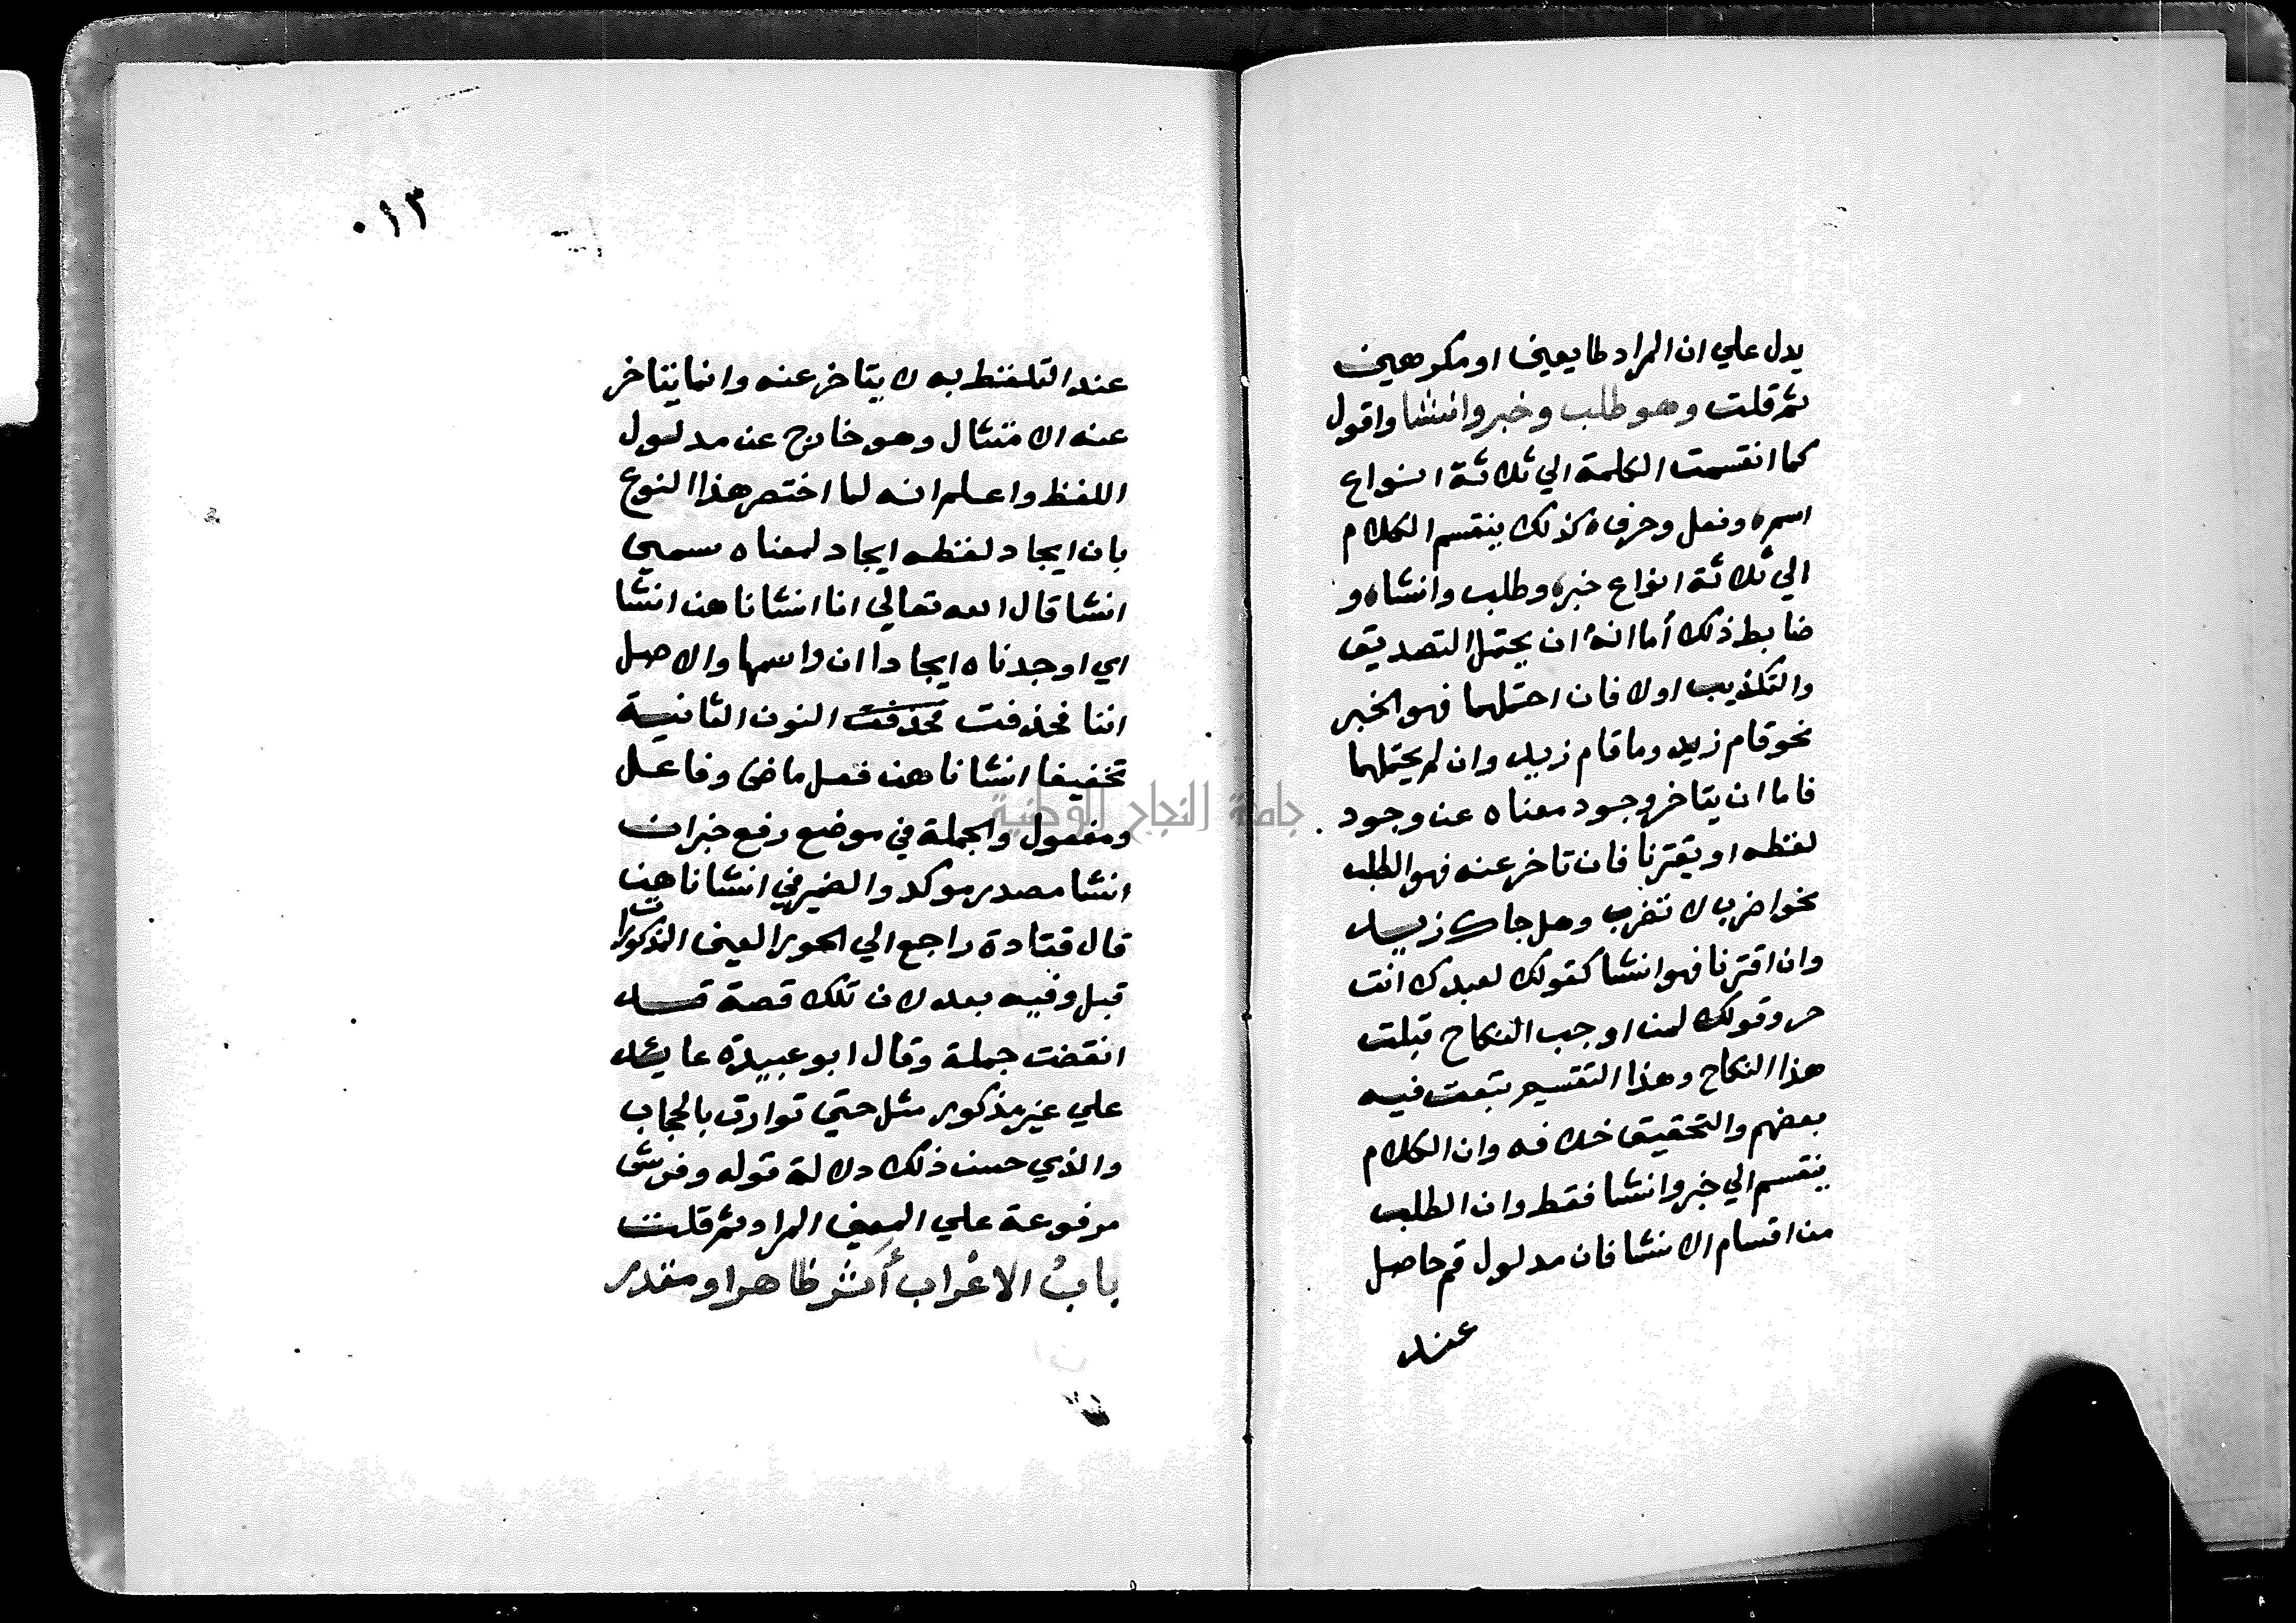 يدل علي ان المراد طايعين او مكرهين
ثم قلت وهو طلب وخبر وانشا واقول
كما انقسمت الكلمة الي ثلاثة انواع
اسم وفعل وحرف كذلك ينقسم الكلام
الي ثلاثة انواع خبر وطلب وانشا و
ضابط ذلك أما انه ان يحتمل التصديق
والتكذيب اولا فان احتملهما فهو الخبر
نحو قام زيد وما قام زيد وان لم يحتملهما
فاما ان يتاخر وجود معناه عن وجود
لفظه او يقترنا فان تاخر عنه فهو الطلب
نحو اضرب لا تضرب وهل جاك زيد
وان اقترنا فهو انشا كقولك لعبدك انت
حر وقولك لمن اوجب النكاح قبلت
هذا النكاح وهذا التقسيم تبعت فيه
بعضهم والتحقيق خلافه وان الكلام
ينقسم الي خبر وانشا فقط وان الطلب
من اقسام الانشا فان مدلول قم حاصل
عند
٠١٣
عند التلفظ به لا يتاخر عنه وانما يتاخر
عنه الامتثال وهو خارج عن مدلول
اللفظ واعلم انه لما اختص هذا النوع
بان ايجاد لفظه ايجاد لمعناه سمي
انشا قال الله تعالي انا انشاناهن انشا
اي اوجدناه ايجادا ان واسمها والاصل
اننا فحذفت فحذفت النون الثانية
تخفيفا انشاناهن فعل ماضي وفاعل
ومفعول والجملة في موضع رفع خبر ان
انشا مصدر موكد والضمير في انشاناهن
قال قتادة راجع الي الحور العين المذكورات
قبل وفيه بعد لان تلك قصة قد
انقضت جملة وقال ابو عبيدة عايد
علي غير مذكور مثل حتي توارت بالحجاب
والذي حسن ذلك دلالة قوله وفرش
مرفوعة علي المعني المراد ثم قلت
بابُ الاعْراب أثر ظاهر او مقدر
جامعة النجاح الوطنية